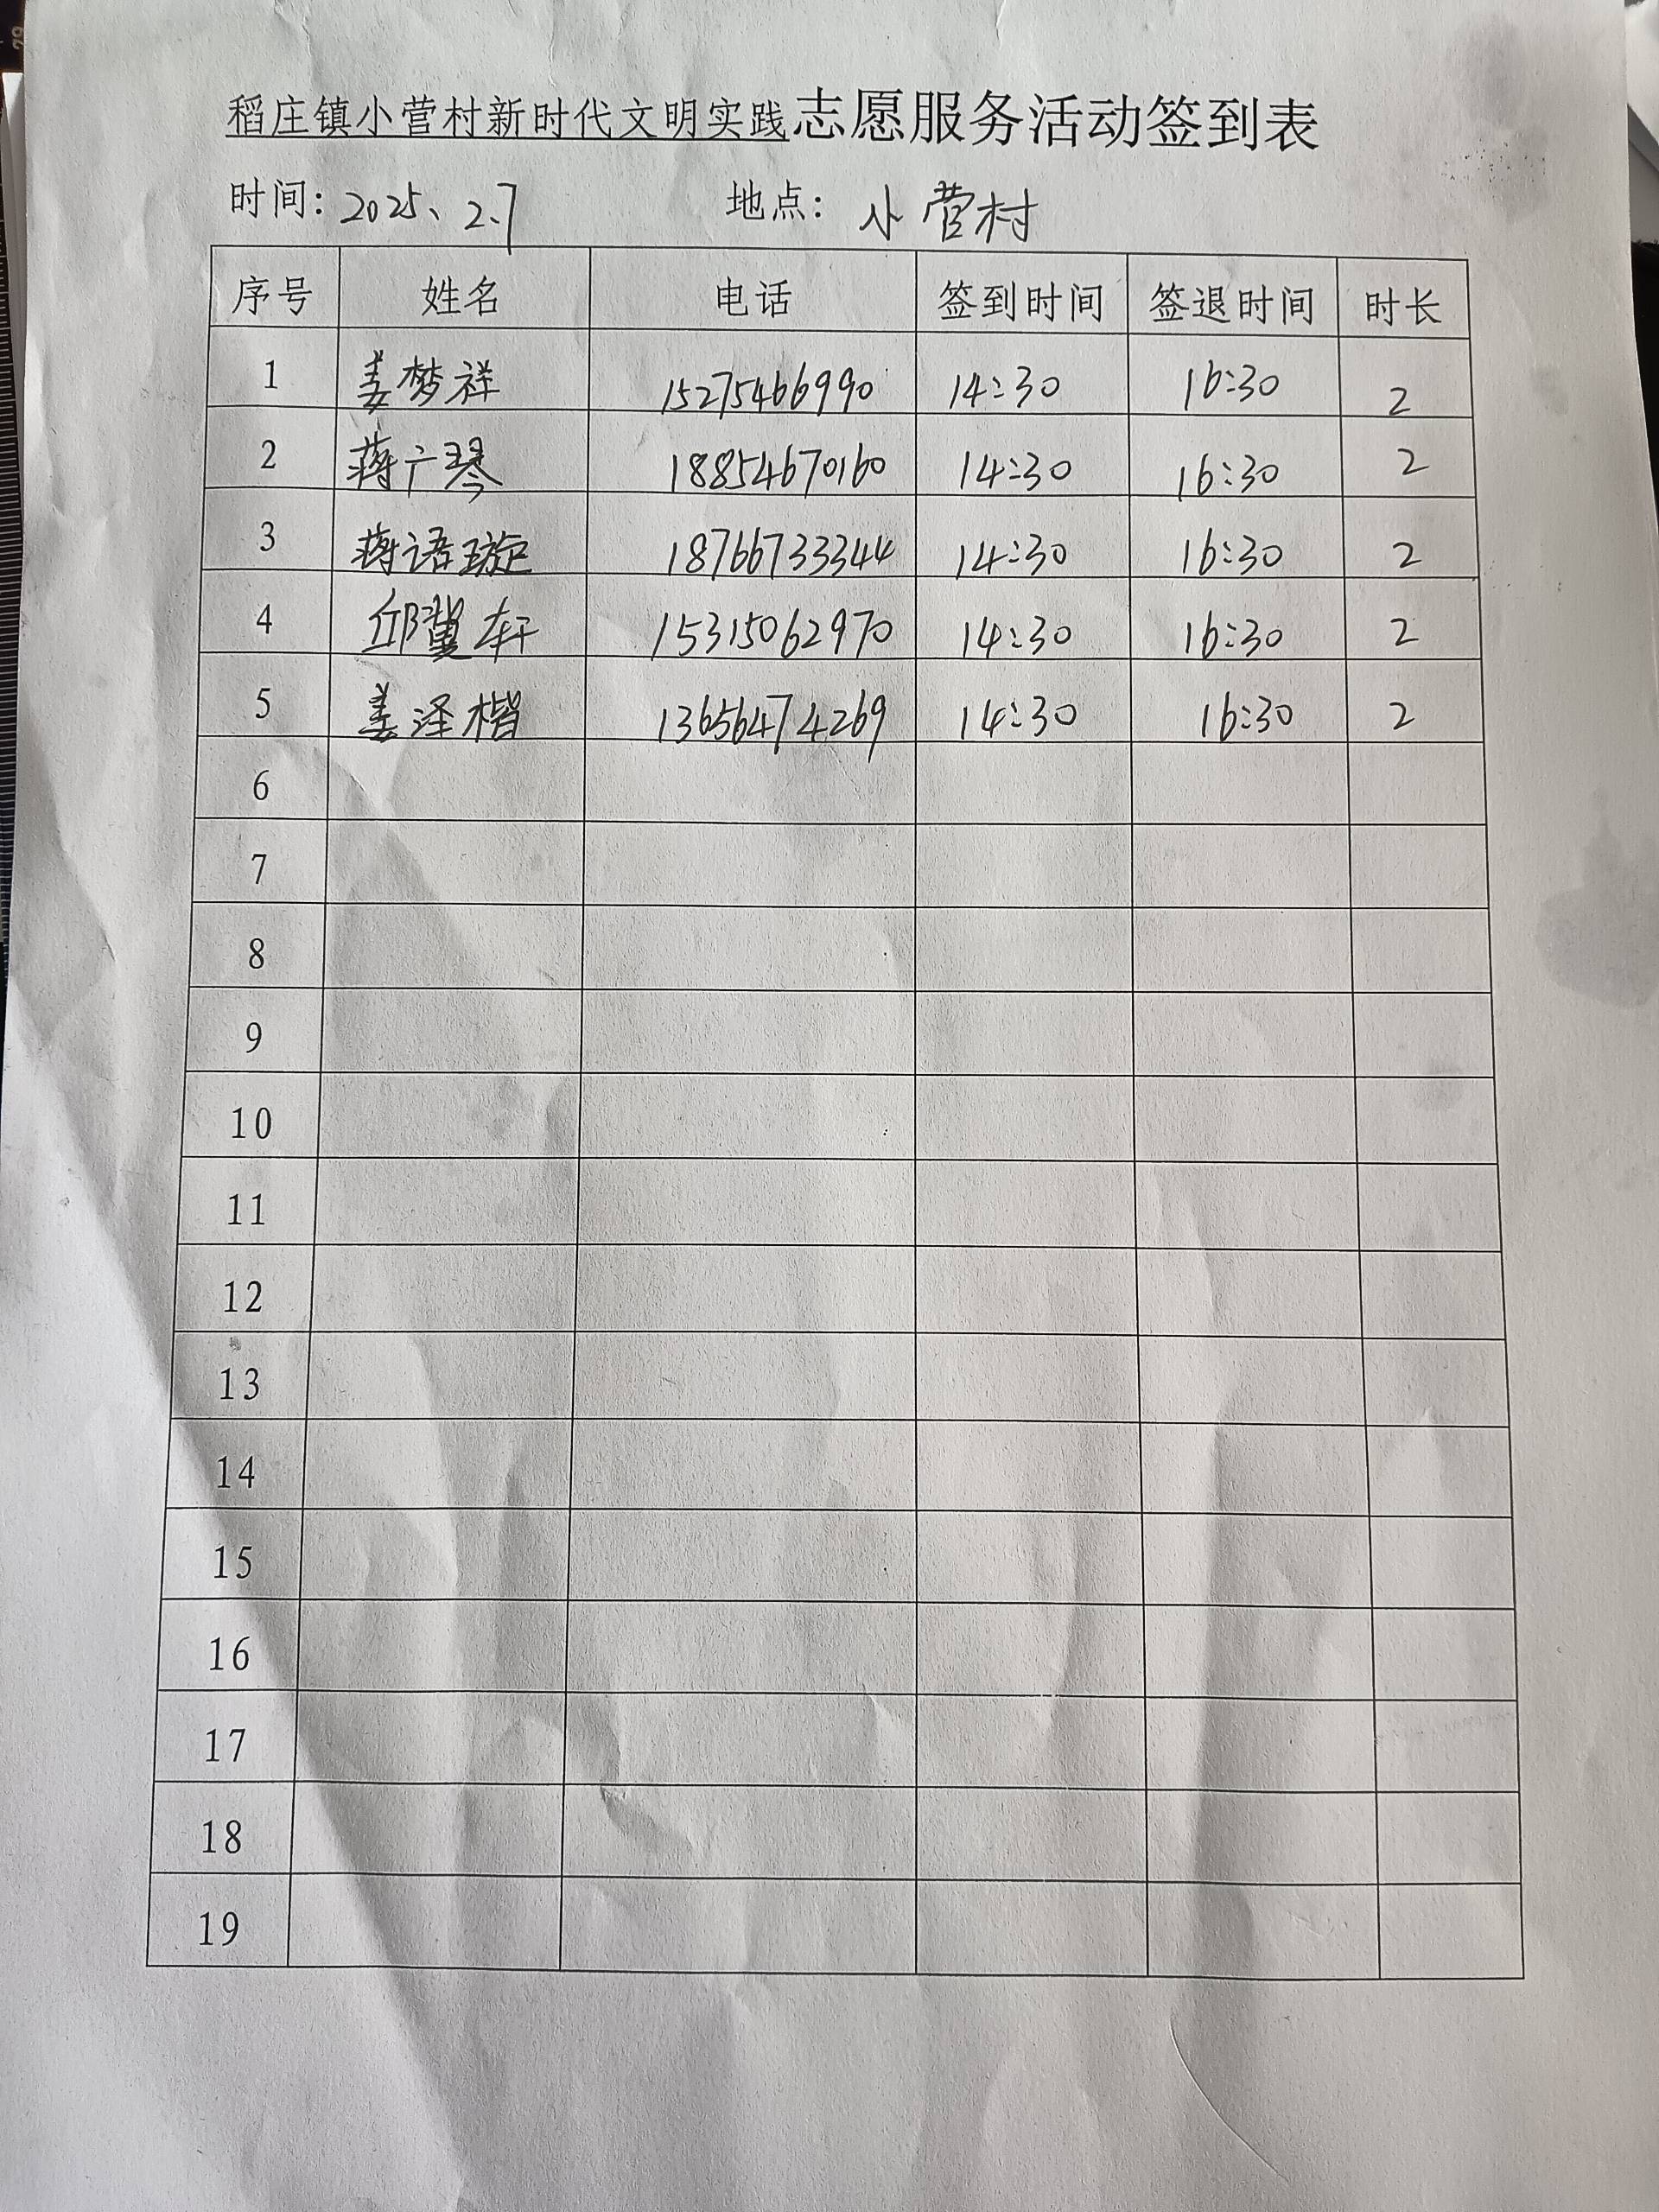 稻庄镇小营村新时代文明实践志愿服务活动签到表
时间：2025、2.7 地点：小营村
序号 姓名 电话 签到时间 签退时间 时长
1 姜梦祥 15275466990 14:30 16:30 2
2 蒋广琴 18854670160 14:30 16:30 2
3 蒋语璇 18766733344 14:30 16:30 2
4 邱冀轩 15315062970 14:30 16:30 2
5 姜泽楷 13656474269 14:30 16:30 2
6
7
8
9
10
11
12
13
14
15
16
17
18
19